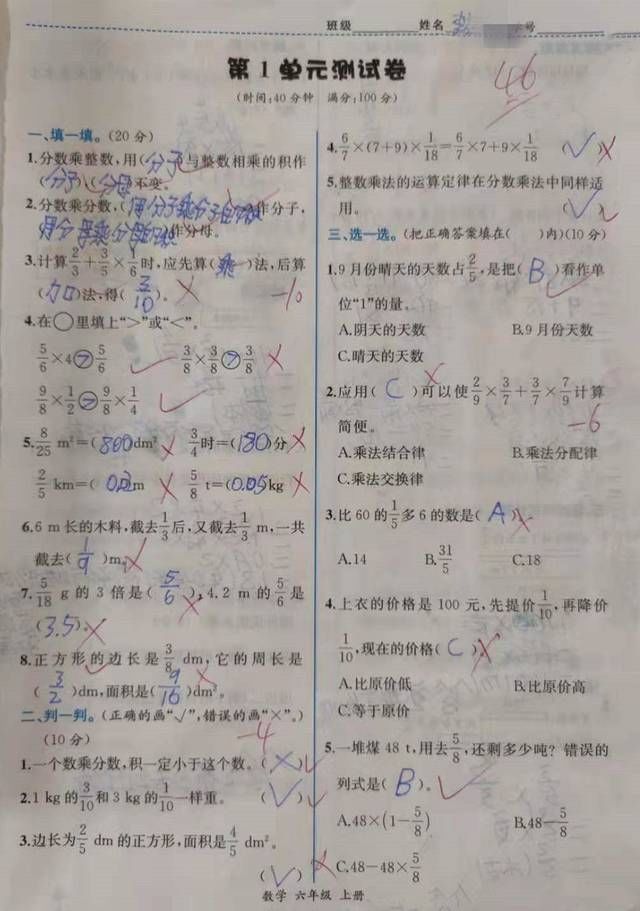 班级 姓名 号
第1单元测试卷
46
(时间:40分钟 满分:100分)
一、填一填。(20分)
1.分数乘整数,用(分子)与整数相乘的积作
(分子),(分母)不变。
2.分数乘分数,( )作分子,
作分母。
3.计算2/3+3/5×1/6时,应先算(乘)法,后算
(加)法,得(3/10)。
-10
4.在○里填上“>”或“<”。
5/6×4>5/6 3/8×3/8>3/8
9/8×1/2>9/8×1/4
5.8/25 m²=(800)dm² 3/4时=(180)分
2/5 km=( )m 5/8 t=(0.05)kg
6.6 m长的木料,截去1/3后,又截去1/3 m,一共
截去(1/9)m。
7.5/18 g的3倍是(5/6),4.2 m的5/6是
(3.5)。
8.正方形的边长是3/8 dm,它的周长是
(3/2)dm,面积是(9/16)dm²。
二、判一判。(正确的画“√”,错误的画“×”。)
(10分)
-4
1.一个数乘分数,积一定小于这个数。(×)
2.1 kg的3/10和3 kg的1/10一样重。(√)
3.边长为2/5 dm的正方形,面积是4/5 dm²。
(√)
4.6/7×(7+9)×1/18=6/7×7+9×1/18 (√)
5.整数乘法的运算定律在分数乘法中同样适
用。(√)
三、选一选。(把正确答案填在( )内)(10分)
1.9月份晴天的天数占2/5,是把(B)看作单
位“1”的量。
A.阴天的天数 B.9月份天数
C.晴天的天数
2.应用(C)可以使2/9×3/7+3/7×7/9计算
简便。
-6
A.乘法结合律 B.乘法分配律
C.乘法交换律
3.比60的1/5多6的数是(A)。
A.14 B.31/5 C.18
4.上衣的价格是100元,先提价1/10,再降价
1/10,现在的价格(C)。
A.比原价低 B.比原价高
C.等于原价
5.一堆煤48 t,用去5/8,还剩多少吨?错误的
列式是(B)。
A.48×(1-5/8) B.48-5/8
C.48-48×5/8
数学 六年级 上册